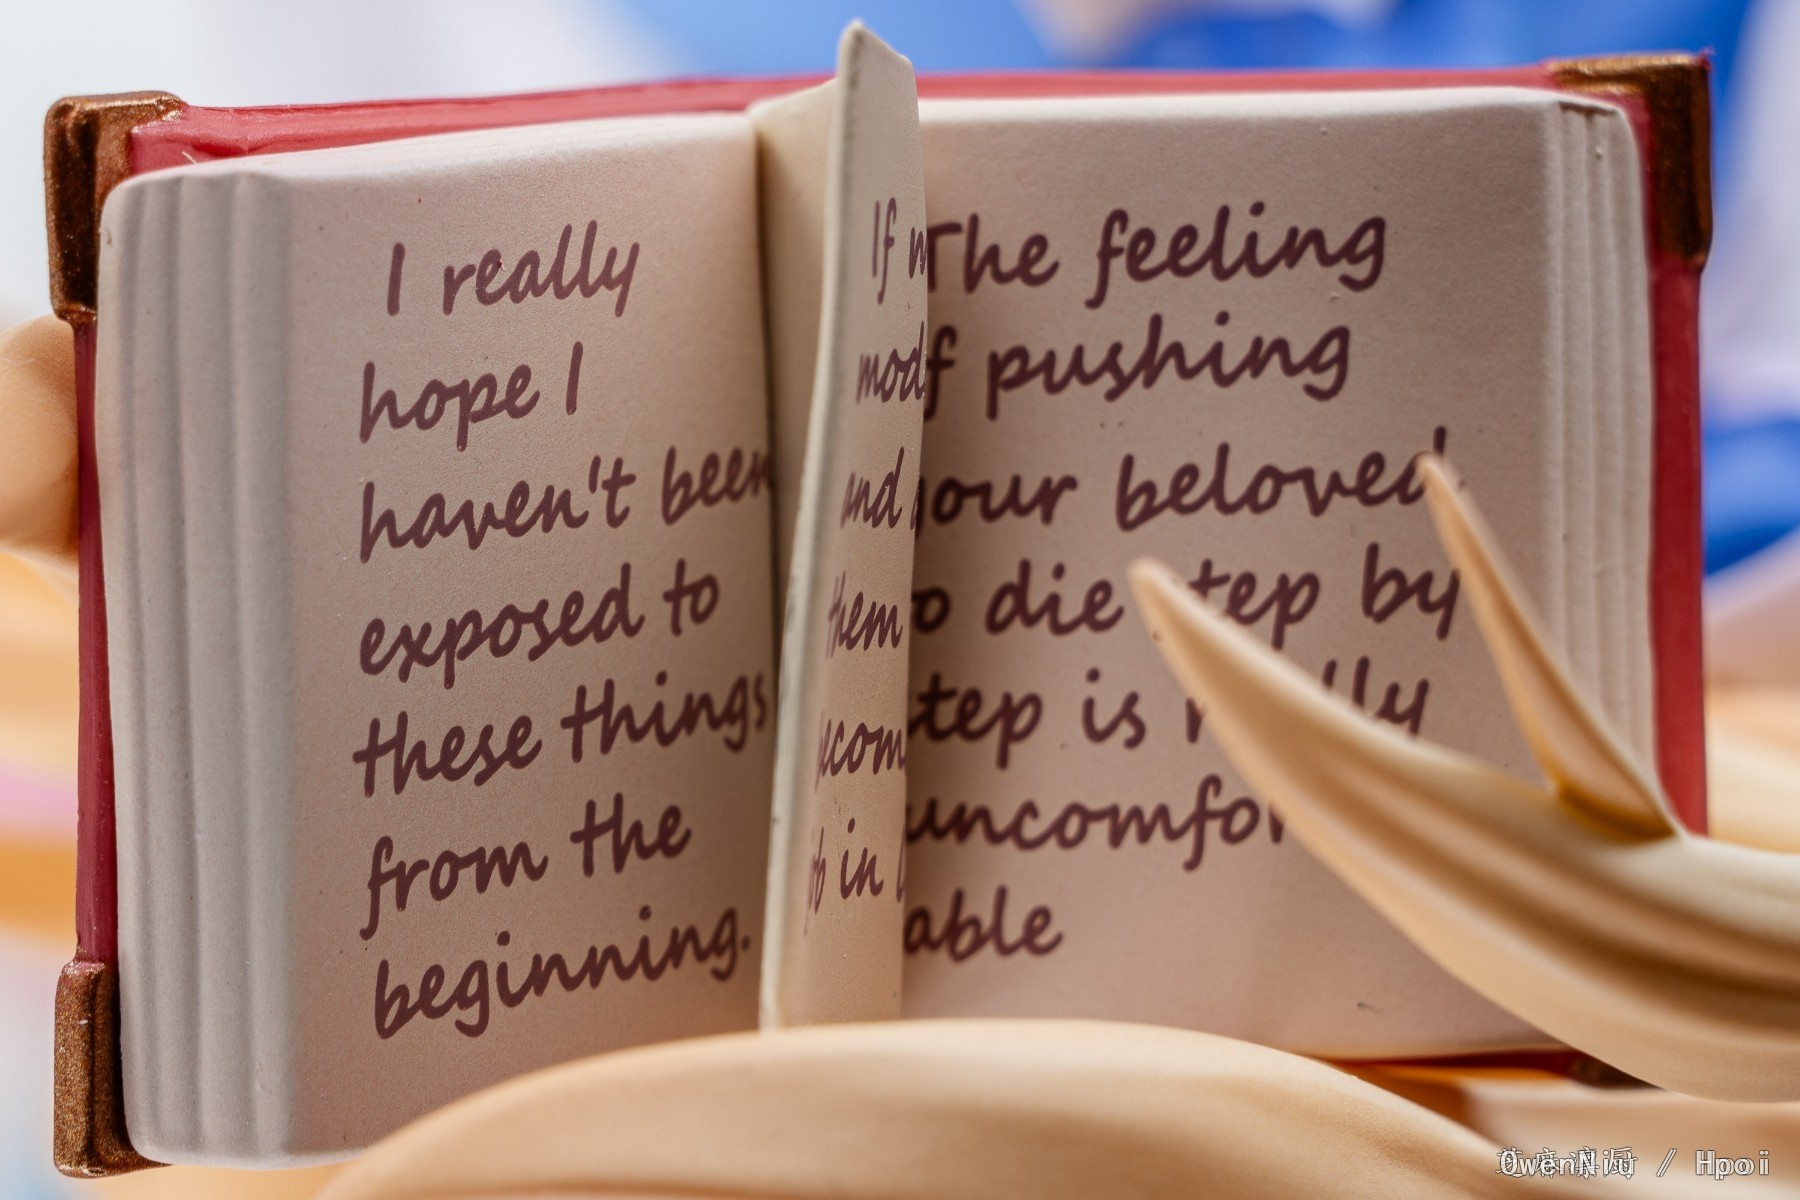 I really
hope I
haven't been
exposed to
these things
from the
beginning.
If
and
them
in
The feeling
pushing
your beloved
to die step by
step is really
able
OwenNiu / Hpoi